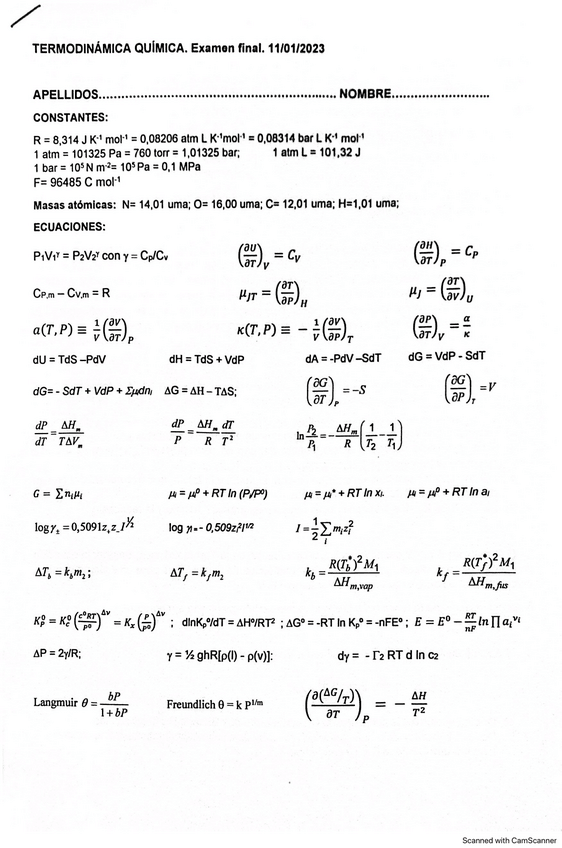 TERMODINÁMICA QUÍMICA. Examen final. 11/01/2023
APELLIDOS............................................................. NOMBRE.........................
CONSTANTES:
R = 8,314 J K⁻¹ mol⁻¹ = 0,08206 atm L K⁻¹mol⁻¹ = 0,08314 bar L K⁻¹ mol⁻¹
1 atm = 101325 Pa = 760 torr = 1,01325 bar; 1 atm L = 101,32 J
1 bar = 10⁵ N m⁻²= 10⁵ Pa = 0,1 MPa
F= 96485 C mol⁻¹
Masas atómicas: N= 14,01 uma; O= 16,00 uma; C= 12,01 uma; H=1,01 uma;
ECUACIONES:
P₁V₁^γ = P₂V₂^γ con γ = C_P/C_V (∂U/∂T)_V = C_V (∂H/∂T)_P = C_P
C_P,m – C_V,m = R μ_JT = (∂T/∂P)_H μ_J = (∂T/∂V)_U
α(T, P) ≡ 1/V (∂V/∂T)_P κ(T, P) ≡ − 1/V (∂V/∂P)_T (∂P/∂T)_V = α/κ
dU = TdS –PdV dH = TdS + VdP dA = -PdV –SdT dG = VdP - SdT
dG= - SdT + VdP + Σμᵢdnᵢ ΔG = ΔH – TΔS; (∂G/∂T)_P = −S (∂G/∂P)_T = V
dP/dT = ΔH_m/TΔV_m dP/P = ΔH_m/R dT/T² ln P₂/P₁ = − ΔH_m/R (1/T₂ − 1/T₁)
G = Σnᵢμᵢ μᵢ = μᵢ⁰ + RT ln (P/P⁰) μᵢ = μᵢ* + RT ln xᵢ. μᵢ = μᵢ⁰ + RT ln aᵢ
logγ± = 0,5091z₊z₋I^½ log γᵢ= - 0,509zᵢ²I^1/2 I = 1/2 Σᵢ mᵢzᵢ²
ΔT_b = k_b m₂ ; ΔT_f = k_f m₂ k_b = R(T_b*)² M₁/ΔH_m,vap k_f = R(T_f*)² M₁/ΔH_m,fus
K_P⁰ = K_c⁰ (c⁰RT/P⁰)^Δν = K_x (P/P⁰)^Δν ; dlnK_P⁰/dT = ΔH⁰/RT² ; ΔG⁰ = -RT ln K_P⁰ = -nFE⁰ ; E = E⁰ − RT/nF ln ∏ aᵢ^νᵢ
ΔP = 2γ/R; γ = ½ ghR[ρ(l) - ρ(v)]: dγ = - Γ₂ RT d ln c₂
Langmuir θ = bP/1+bP Freundlich θ = k P^1/m (∂(ΔG/T)/∂T)_P = − ΔH/T²
Scanned with CamScanner